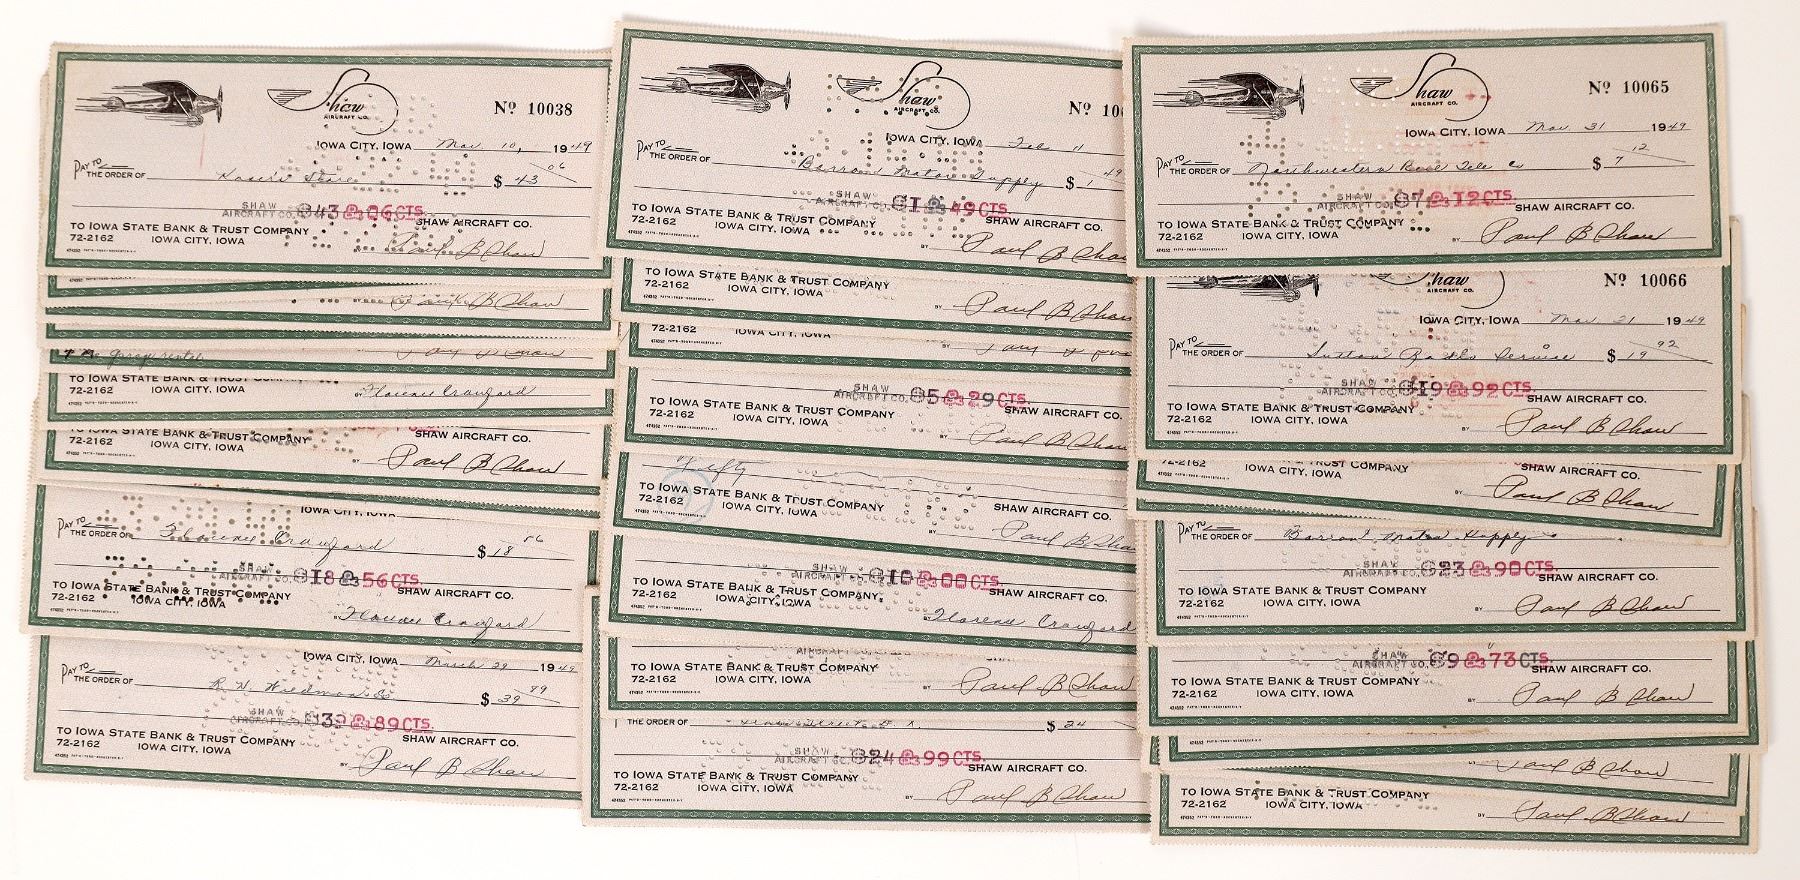 Shaw
AIRCRAFT CO.
Nº 10038
IOWA CITY, IOWA Mar. 10, 1949
PAY TO
THE ORDER OF $ 43 06
SHAW
AIRCRAFT CO. 43 06 CTS.
SHAW AIRCRAFT CO.
TO IOWA STATE BANK & TRUST COMPANY
72-2162 IOWA CITY, IOWA
Paul B Shaw
Paul B Shaw
TO IOWA STATE BANK & TRUST COMPANY
72-2162 IOWA CITY, IOWA
Florence Crawford
TO IOWA STATE BANK & TRUST COMPANY
SHAW AIRCRAFT CO.
72-2162 IOWA CITY, IOWA
Paul B Shaw
IOWA CITY, IOWA
PAY TO
THE ORDER OF Florence Crawford $ 18 56
SHAW
AIRCRAFT CO. 18 56 CTS.
SHAW AIRCRAFT CO.
TO IOWA STATE BANK & TRUST COMPANY
72-2162 IOWA CITY, IOWA
Florence Crawford
IOWA CITY, IOWA March 29 1949
PAY TO
THE ORDER OF $ 39 89
SHAW
AIRCRAFT CO. 39 89 CTS.
SHAW AIRCRAFT CO.
TO IOWA STATE BANK & TRUST COMPANY
72-2162 IOWA CITY, IOWA
BY Paul B Shaw
Shaw
AIRCRAFT CO.
Nº 100
IOWA CITY, IOWA Feb 11
PAY TO
THE ORDER OF Barron Motor Supply $ 1 49
SHAW
AIRCRAFT CO. 1 49 CTS.
SHAW AIRCRAFT CO.
TO IOWA STATE BANK & TRUST COMPANY
72-2162 IOWA CITY, IOWA
BY Paul B Shaw
TO IOWA STATE BANK & TRUST COMPANY
72-2162 IOWA CITY, IOWA
BY Paul B Shaw
72-2162 IOWA CITY, IOWA
SHAW
AIRCRAFT CO. 5 29 CTS.
SHAW AIRCRAFT CO.
TO IOWA STATE BANK & TRUST COMPANY
72-2162 IOWA CITY, IOWA
BY Paul B Shaw
Fifty
TO IOWA STATE BANK & TRUST COMPANY
SHAW AIRCRAFT CO.
72-2162 IOWA CITY, IOWA
Paul B Shaw
SHAW
AIRCRAFT CO. 10 00 CTS.
SHAW AIRCRAFT CO.
TO IOWA STATE BANK & TRUST COMPANY
72-2162 IOWA CITY, IOWA
Florence Crawford
AIRCRAFT CO.
TO IOWA STATE BANK & TRUST COMPANY
72-2162 IOWA CITY, IOWA
BY Paul B Shaw
THE ORDER OF $ 24
SHAW
AIRCRAFT CO. 24 99 CTS.
SHAW AIRCRAFT CO.
TO IOWA STATE BANK & TRUST COMPANY
72-2162 IOWA CITY, IOWA
BY Paul B Shaw
Shaw
AIRCRAFT CO.
Nº 10065
IOWA CITY, IOWA Mar. 31 1949
PAY TO
THE ORDER OF Northwestern Bell Tele Co $ 7 12
SHAW
AIRCRAFT CO. 7 12 CTS.
SHAW AIRCRAFT CO.
TO IOWA STATE BANK & TRUST COMPANY
72-2162 IOWA CITY, IOWA
BY Paul B Shaw
Shaw
AIRCRAFT CO.
Nº 10066
IOWA CITY, IOWA Mar 31 1949
PAY TO
THE ORDER OF Sutton Radio Service $ 19 92
SHAW
AIRCRAFT CO. 19 92 CTS.
SHAW AIRCRAFT CO.
TO IOWA STATE BANK & TRUST COMPANY
72-2162 IOWA CITY, IOWA
BY Paul B Shaw
SHAW AIRCRAFT CO.
72-2162 IOWA CITY, IOWA
BY Paul B Shaw
PAY TO
THE ORDER OF Barron Motor Supply
SHAW
AIRCRAFT CO. 23 90 CTS.
SHAW AIRCRAFT CO.
TO IOWA STATE BANK & TRUST COMPANY
72-2162 IOWA CITY, IOWA
BY Paul B Shaw
SHAW
AIRCRAFT CO. 9 73 CTS.
SHAW AIRCRAFT CO.
TO IOWA STATE BANK & TRUST COMPANY
72-2162 IOWA CITY, IOWA
BY Paul B Shaw
Paul B Shaw
TO IOWA STATE BANK & TRUST COMPANY
72-2162 IOWA CITY, IOWA
BY Paul B Shaw